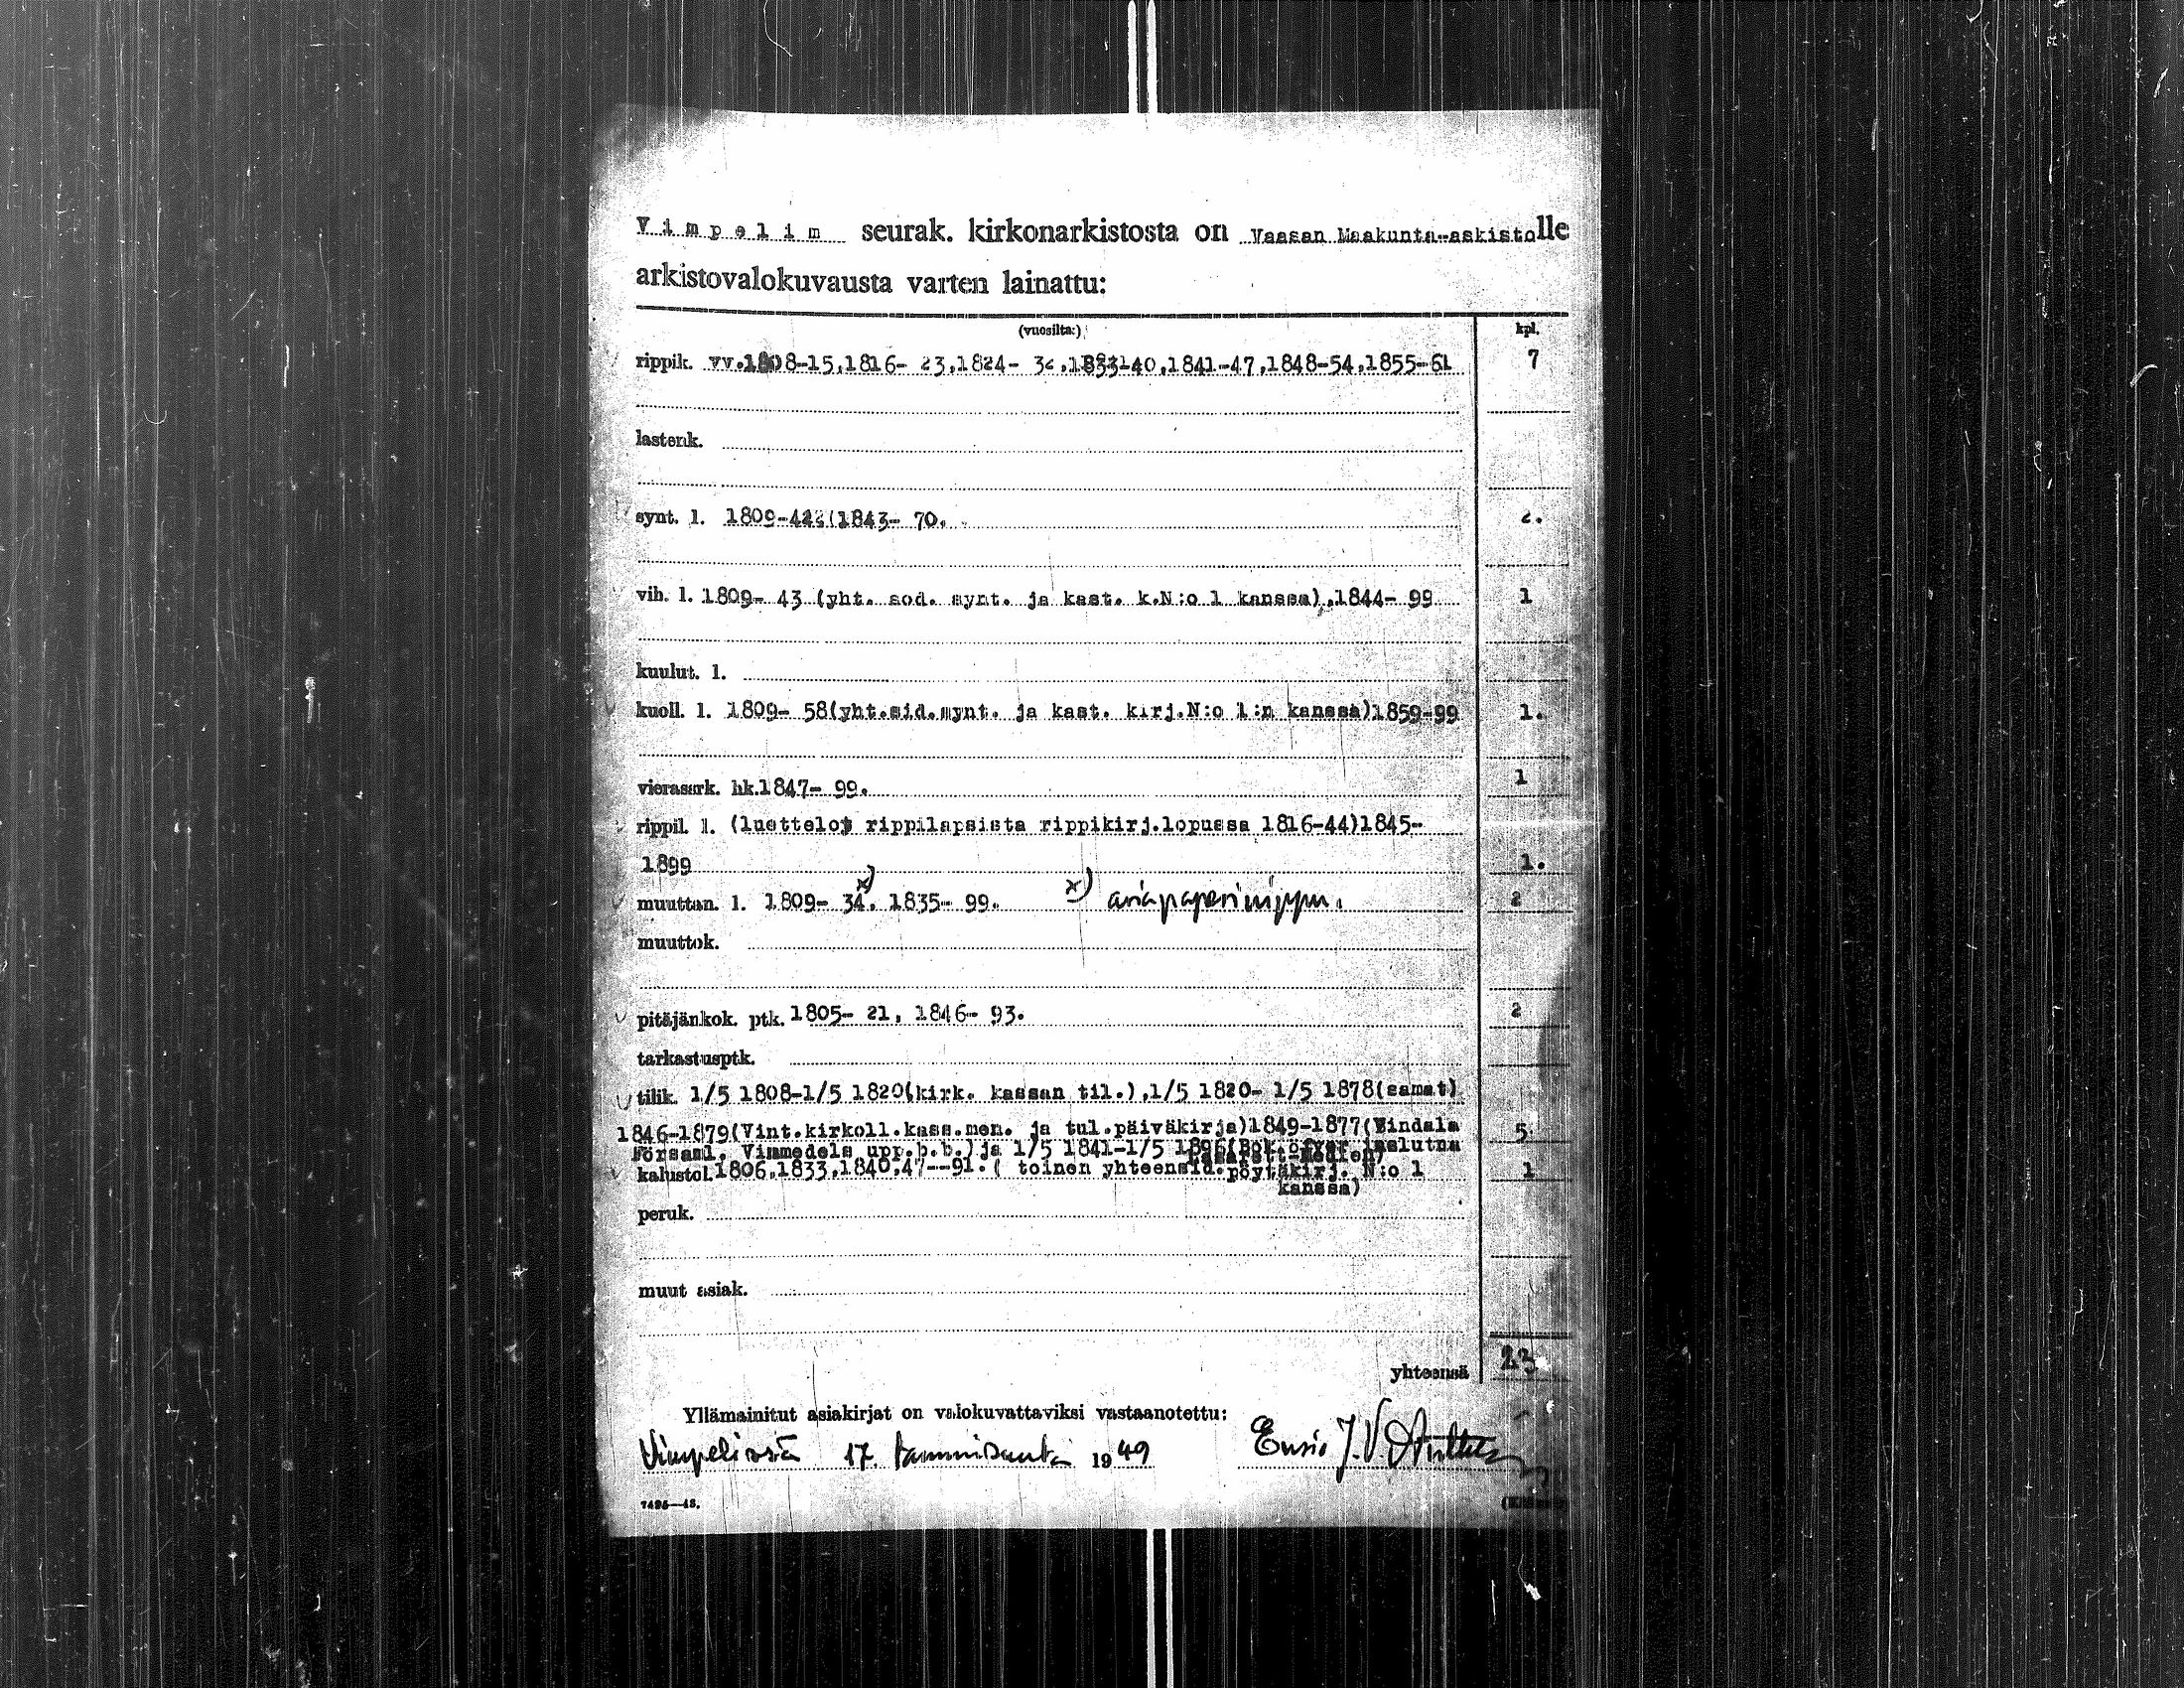 Vimpelin seurak. kirkonarkistosta on Vaasan Maakunta-askistolle
arkistovalokuvausta varten lainattu:
(vuosilta:) kpl.
rippik. vv.1808-15,1816- 23,1824- 32,1833-40,1841-47,1848-54,1855-61 7
lastenk.
synt. l. 1809-42 (1843- 70. 2.
vih. l. 1809- 43 (yht. sod. synt. ja kast. k.N:o 1 kanssa),1844- 99 1
kuulut. l.
kuoll. l. 1809- 58(yht.sid.synt. ja kast. kirj.N:o 1:n kanssa)1859-99 1.
vierasark. hk.1847- 99. 1
rippil. l. (luettelot rippilapsista rippikirj.lopussa 1816-44)1845-
1899 1.
muuttan. l. 1809- 34. x) 1835- 99. x) asiapaperinippu. 2
muuttok.
pitäjänkok. ptk. 1805- 21, 1846- 93. 2
tarkastusptk.
tilik. 1/5 1808-1/5 1820(kirk. kassan til.),1/5 1820- 1/5 1878(samat)
1846-1879(Vint.kirkoll.kass.men. ja tul.päiväkirja)1849-1877(Vindala 5
Församl. Vimmedels upp.b.b.)ja 1/5 1841-1/5 1896(Bok öfver
kalustol.1806,1833,1840,47--91.( toinen yhteensid.pöytäkirj. N:o 1 1
kanssa)
peruk.
muut asiak.
yhteensä 23
Yllämainitut asiakirjat on valokuvattaviksi vastaanotettu:
Vimpelissä 17. tammikuuta 1949 Ensio J.V.
7495—48.